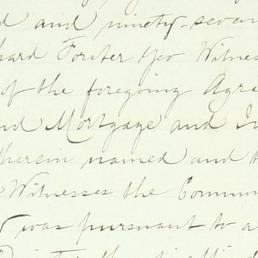 and ninety-seven
Forster Witness
of the foregoing Agre
nd Mortgage and In
therein named and
Witnesses the Commun
was pursuant to a